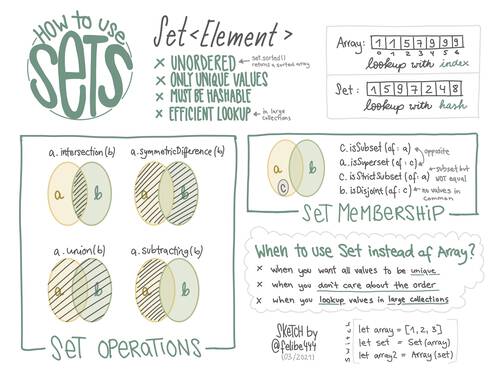 HOW TO USE
SETS
Set<Element>
× UNORDERED
set.sorted()
returns a sorted array
× ONLY UNIQUE VALUES
× MUST BE HASHABLE
× EFFICIENT LOOKUP
in large
collections
Array: 1 1 5 7 9 9 9
0 1 2 3 4 5 6
lookup with index
Set: 1 5 9 7 2 4 8
lookup with hash
a.intersection(b)
a b
a.symmetricDifference(b)
a b
a.union(b)
a b
a.subtracting(b)
a b
SET OPERATIONS
a b
c
c.isSubset(of: a)
opposite
a.isSuperset(of: c)
c.isStrictSubset(of: a)
subset but
NOT equal
b.isDisjoint(of: c)
no values in
common
SET MEMBERSHIP
When to use Set instead of Array?
× when you want all values to be unique
× when you don't care about the order
× when you lookup values in large collections
SKETCH by
@felibe444
(03/2021)
Switch
let array = [1, 2, 3]
let set = Set(array)
let array2 = Array(set)